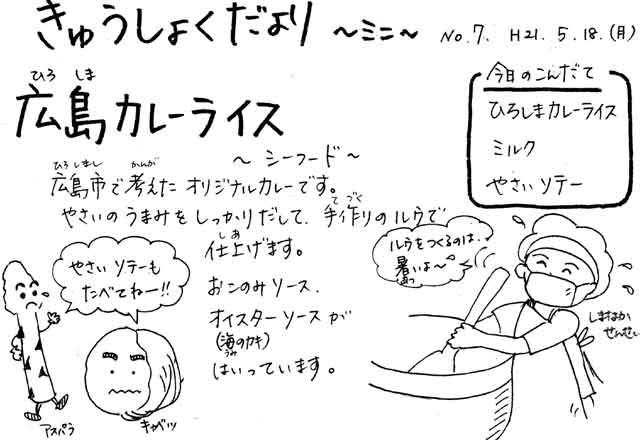 きゅうしょくだより ～ミニ～ No.7. H21.5.18.(月)
今日のこんだて
ひろしまカレーライス
ミルク
やさいソテー
ひろ しま
広島カレーライス
～シーフード～
ひろしまし かんが
広島市で考えたオリジナルカレーです。
やさいのうまみをしっかりだして、手作りのルウで
て づく
しあ
仕上げます。
おこのみソース、
オイスターソースが
(海のカキ)
うみ
はいっています。
やさいソテーも
たべてねー!!
アスパラ
キャベツ
ルウをつくるのは、
暑いよ～
あつ
しまなか
せんせい